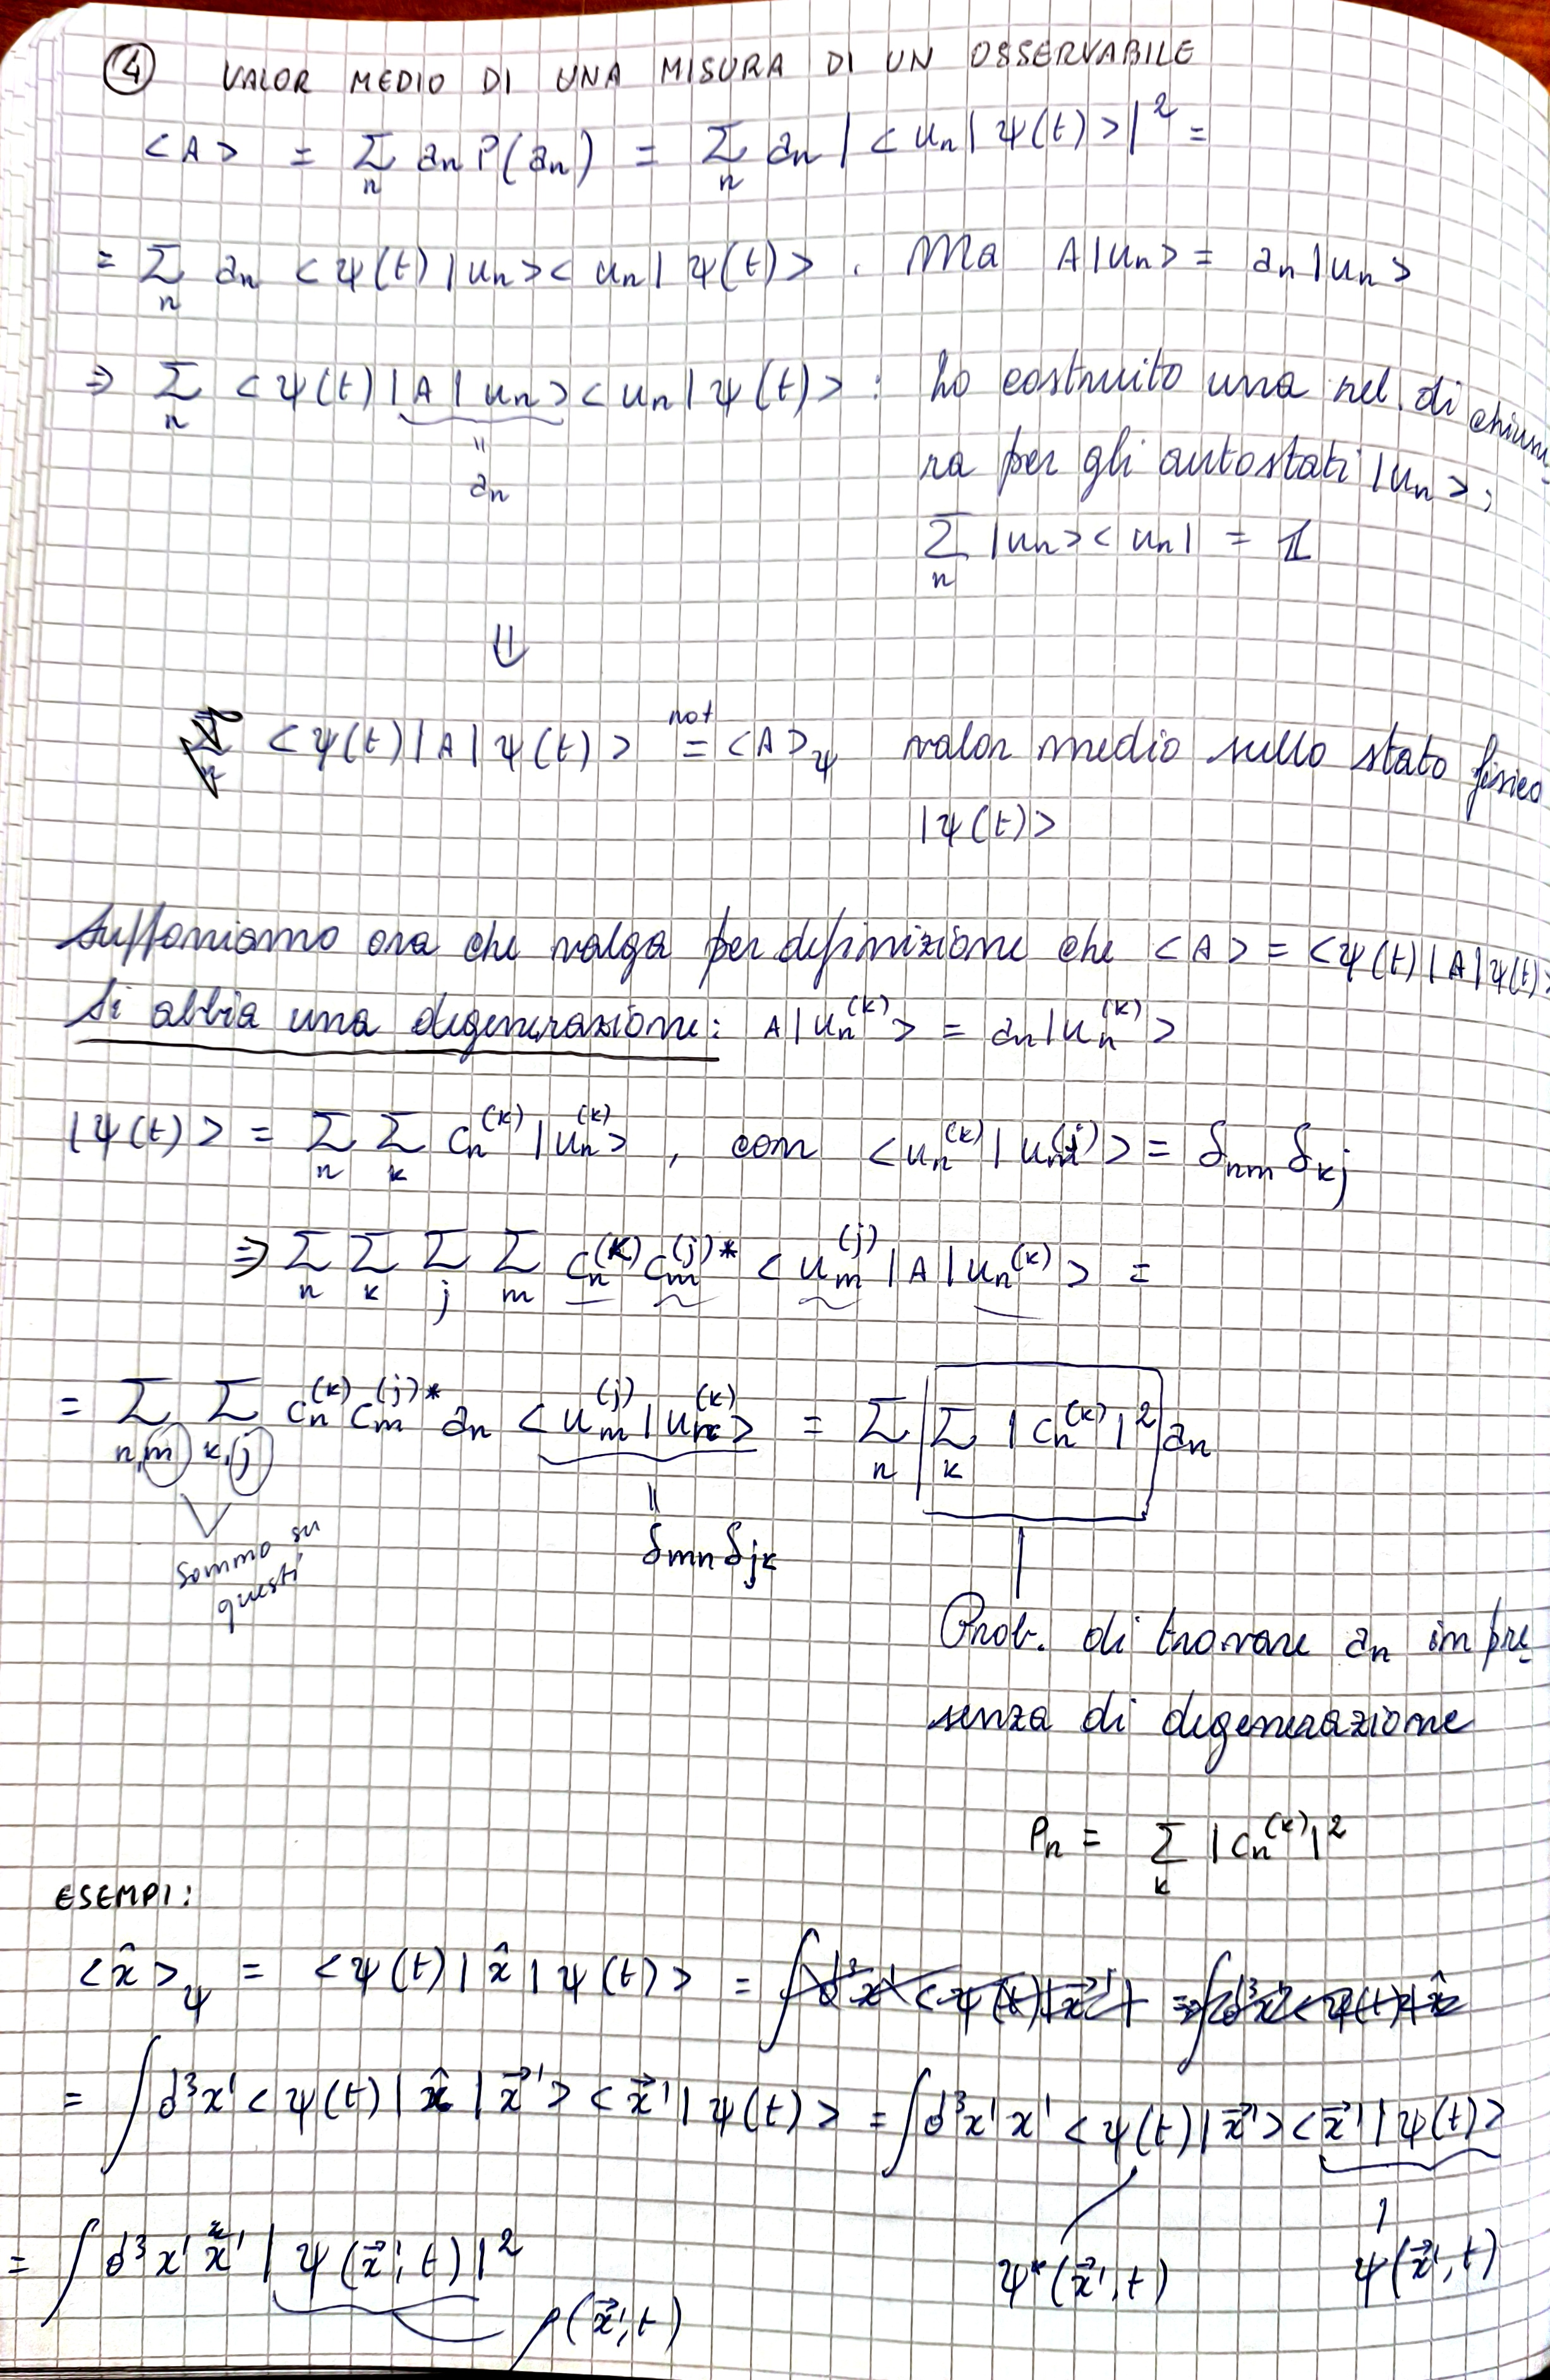 ④ VALOR MEDIO DI UNA MISURA DI UN OSSERVABILE
<A> = Σ_n a_n P(a_n) = Σ_n a_n |<u_n|ψ(t)>|² =
= Σ_n a_n <ψ(t)|u_n><u_n|ψ(t)>. Ma A|u_n> = a_n|u_n>
⇒ Σ_n <ψ(t)|A|u_n><u_n|ψ(t)>: ho costruito una rel. di chiusu
= a_n
ra per gli autostati |u_n>;
Σ_n |u_n><u_n| = 𝟙
⇓
<ψ(t)|A|ψ(t)> =^{not} <A>_ψ valor medio sullo stato fisico
|ψ(t)>
Supponiamo ora che valga per definizione che <A> = <ψ(t)|A|ψ(t)>
Si abbia una degenerazione: A|u_n^(k)> = a_n|u_n^(k)>
|ψ(t)> = Σ_n Σ_k c_n^(k) |u_n^(k)>, con <u_n^(k)|u_m^(j)> = δ_nm δ_kj
⇒ Σ_n Σ_k Σ_j Σ_m c_n^(k) c_m^(j)* <u_m^(j)|A|u_n^(k)> =
= Σ_n,m Σ_k,j c_n^(k) c_m^(j)* a_n <u_m^(j)|u_n^(k)> = Σ_n Σ_k |c_n^(k)|² a_n
sommo su
questi
= δ_mn δ_jk
Prob. di trovare a_n in pre
senza di degenerazione
P_n = Σ_k |c_n^(k)|²
ESEMPI:
<x̂>_ψ = <ψ(t)|x̂|ψ(t)> =
= ∫d³x' <ψ(t)|x̂|x⃗'><x⃗'|ψ(t)> = ∫d³x' x' <ψ(t)|x⃗'><x⃗'|ψ(t)>
ψ*(x⃗',t) ψ(x⃗',t)
= ∫d³x' x' |ψ(x⃗',t)|²
ρ(x⃗',t)